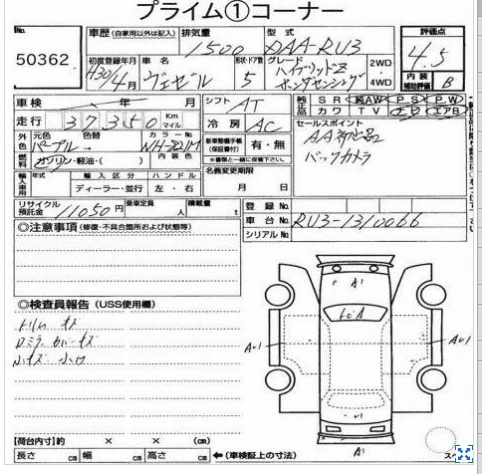 プライム①コーナー
No. 50362
車歴 (自家用以外は記入)
排気量 1500
型式 DAA-RU3
評価点 4.5
内装補助評価 B
初度登録年月 H30/4月
車名 ヴェゼル
形状・ドア数 5
グレード ハイブリッドZ ホンダセンシング
2WD
4WD
車検 年 月
シフト AT
純正品 SR 純AW PS PW
カワ TV ナビ エアB
走行 37350 Km マイル
冷房 AC
セールスポイント
AA
バックカメラ
外色 元色 パープル 色替 カラーNo.
内装色
燃料 ガソリン・軽油・( )
新車整備手帳(保証書付) 有・無
※書類と一緒に保管下さい。
名義変更期限
月 日
輸入車用 年式 輸入区分 ハンドル
ディーラー・並行 左・右
リサイクル預託金 11050円
乗車定員 人
積載量 t
登録No.
車台No. RU3-1310066
シリアルNo.
◎注意事項 (修復・不具合箇所および状態等)
◎検査員報告 (USS使用欄)
A1
A1
[荷台内寸]約 × × (cm)
長さ cm 幅 cm 高さ cm
←(車検証上の寸法)